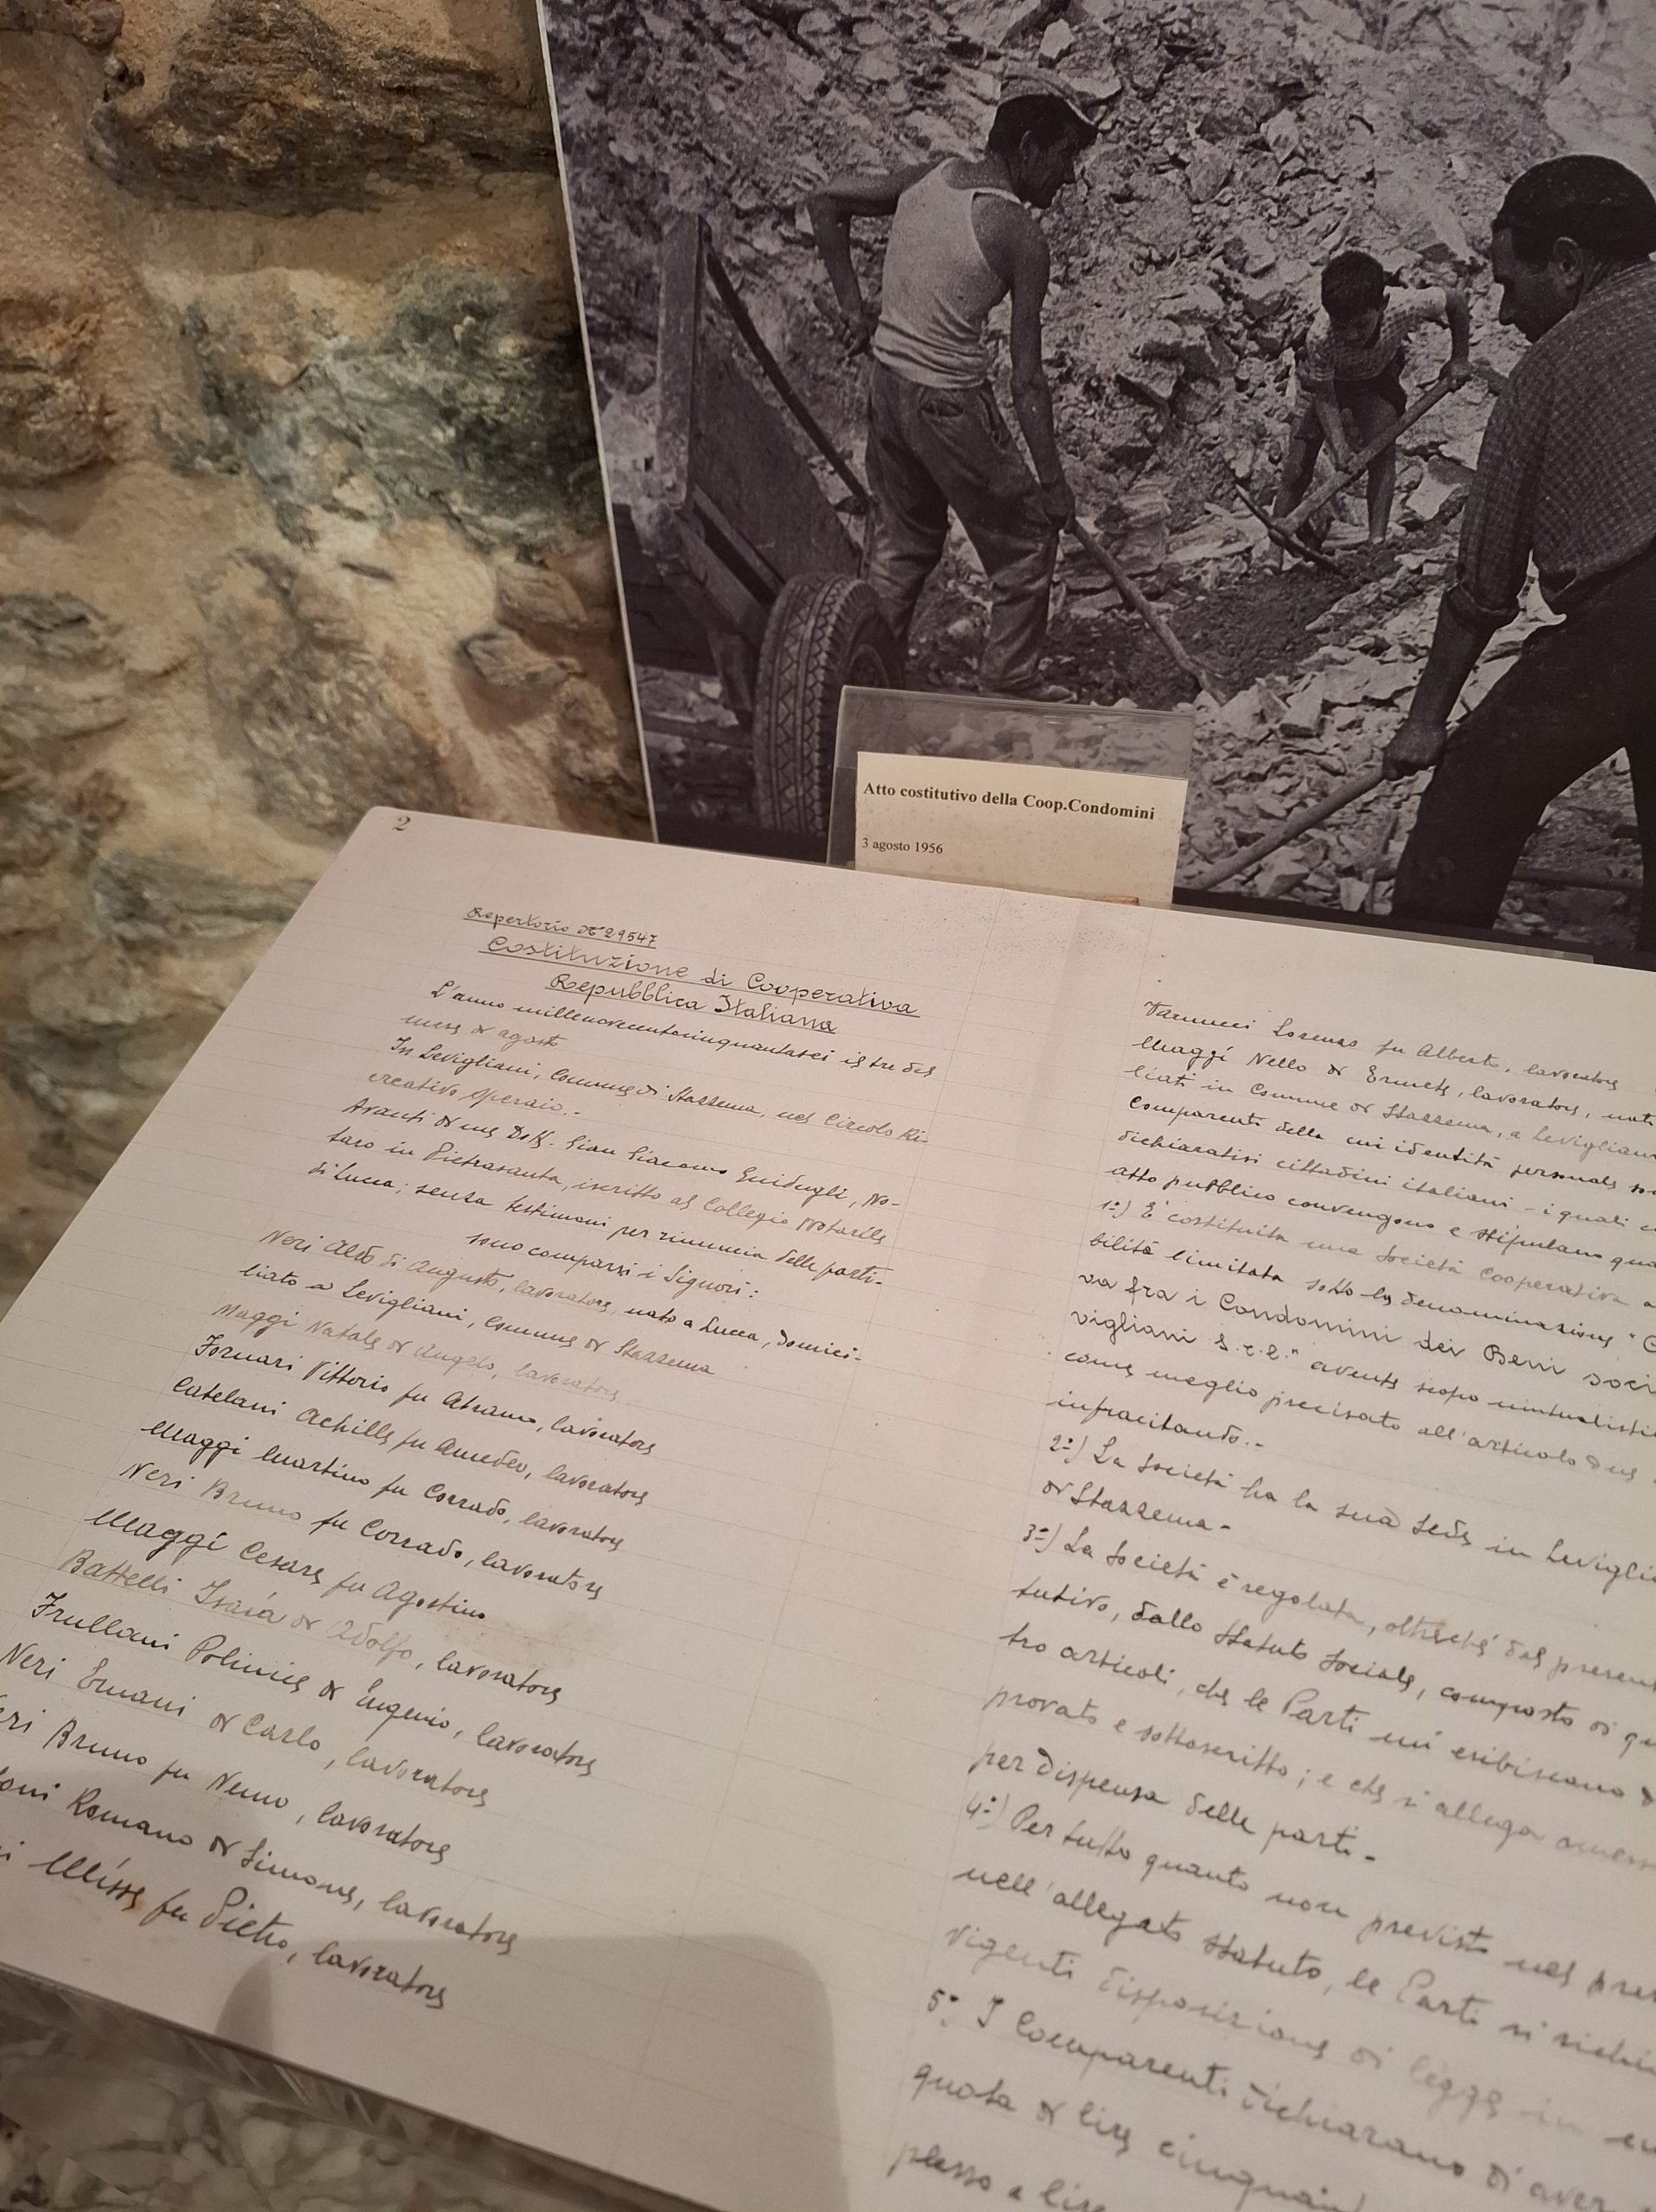 Atto costitutivo della Coop.Condomini
3 agosto 1956
2
Repertorio N° 29547
Costituzione di Cooperativa
Repubblica Italiana
L'anno millenovecentocinquantasei il tre del
mese di agosto
In Levigliani, Comune di Stazzema, nel Circolo Ri-
creativo Operaio.-
Avanti di me Dott. Gian Giacomo Guidugli, No-
taro in Pietrasanta, iscritto al Collegio Notarile
di Lucca; senza testimoni per rinuncia delle parti-
sono comparsi i Signori:
Neri Aldo di Augusto, lavoratore, nato a Lucca, domici-
liato a Levigliani, Comune di Stazzema
Maggi Natale di Angelo, lavoratore
Fornari Vittorio fu Abramo, lavoratore
Catelani Achille fu Amedeo, lavoratore
Maggi Martino fu Corrado, lavoratore
Neri Bruno fu Corrado, lavoratore
Maggi Cesare fu Agostino
Battelli Isaia di Adolfo, lavoratore
Frullani Polinice di Eugenio, lavoratore
Neri Ernani di Carlo, lavoratore
Bruno fu Nemo, lavoratore
Romano di Simone, lavoratore
Ulisse fu Pietro, lavoratore
Vannucci Lorenzo fu Alberto, lavoratore
Maggi Nello di Ermete, lavoratore, nati
liati in Comune di Stazzema, a Levigliani
Comparenti della cui identità personale
dichiaratisi cittadini italiani - i quali
atto pubblico convengono e stipulano
1°) E' costituita una Società Cooperativa a
bilità limitata sotto la denominazione "C
va fra i Condomini dei Beni soci
vigliani s.r.l." avente scopo mutualisti
come meglio precisato all'articolo due
infracitando.-
2°) La Società ha la sua sede in Levigli
di Stazzema-
3°) La Società è regolata, oltreché dal present
tutivo, dallo Statuto Sociale, composto di
tro articoli, che le Parti mi esibiscono
provato e sottoscritto; e che si allega
per dispensa delle parti-
4°) Per tutto quanto non previsto nel pre
nell'allegato Statuto, le Parti si
vigenti disposizione di legge in
5° I Comparenti dichiarano di aver
quota di lire
plesso a lire